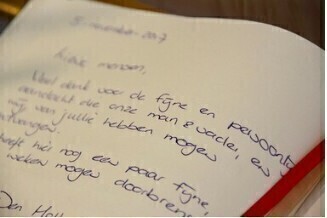 15 november 2017
Lieve mensen,
Veel dank voor de fijne en persoonlijke
aandacht die onze man & vader, en
wij van jullie hebben mogen
ontvangen.
heeft hier nog een paar fijne
weken mogen doorbrengen
Den H